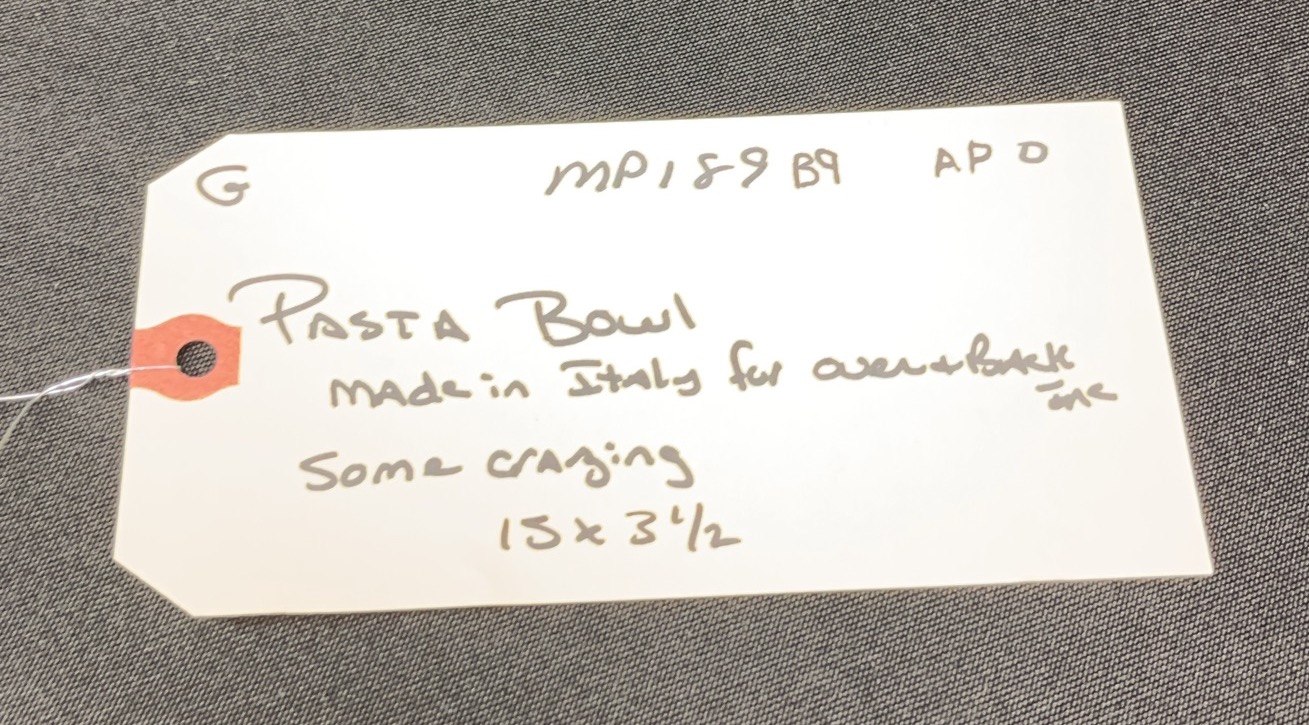 G MP189 B9 APO
PASTA Bowl
MAde in Italy for over + Back
Inc
Some crazing
15 x 3 1/2